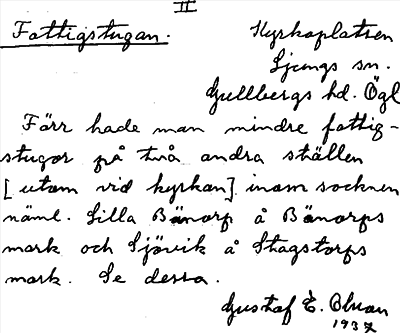 II
Fattigstugan.
Kyrkoplatsen
Ljungs sn.
Gullbergs hd. Ögl
Förr hade man mindre fattig-
stugor på två andra ställen
[utom vid kyrkan] inom socknen
näml. Lilla Bänorp å Bänorps
mark och Sjövik å Stagstorps
mark. Se dessa.
Gustaf E. Olson
1937